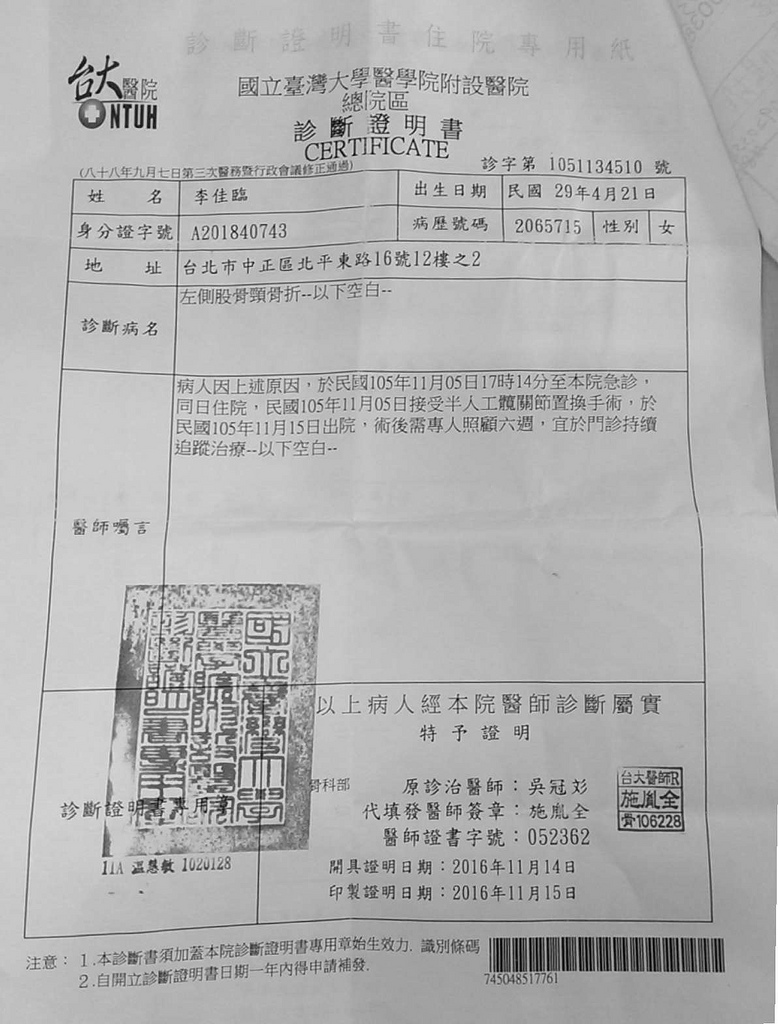 診斷證明書住院專用紙
台大醫院
NTUH
國立臺灣大學醫學院附設醫院
總院區
診斷證明書
CERTIFICATE
(八十八年九月七日第三次醫務暨行政會議修正通過)
診字第 1051134510 號
姓名 李佳臨 出生日期 民國 29年4月21日
身分證字號 A201840743 病歷號碼 2065715 性別 女
地址 台北市中正區北平東路16號12樓之2
診斷病名 左側股骨頸骨折--以下空白--
醫師囑言
病人因上述原因，於民國105年11月05日17時14分至本院急診，
同日住院，民國105年11月05日接受半人工髖關節置換手術，於
民國105年11月15日出院，術後需專人照顧六週，宜於門診持續
追蹤治療--以下空白--
以上病人經本院醫師診斷屬實
特予證明
骨科部 原診治醫師：吳冠彣
代填發醫師簽章：施胤全
醫師證書字號：052362
台大醫師R
施胤全
骨106228
診斷證明書專用章
11A 溫慧敏 1020128
開具證明日期：2016年11月14日
印製證明日期：2016年11月15日
注意：1.本診斷書須加蓋本院診斷證明書專用章始生效力. 識別條碼
2.自開立診斷證明書日期一年內得申請補發.
745048517761